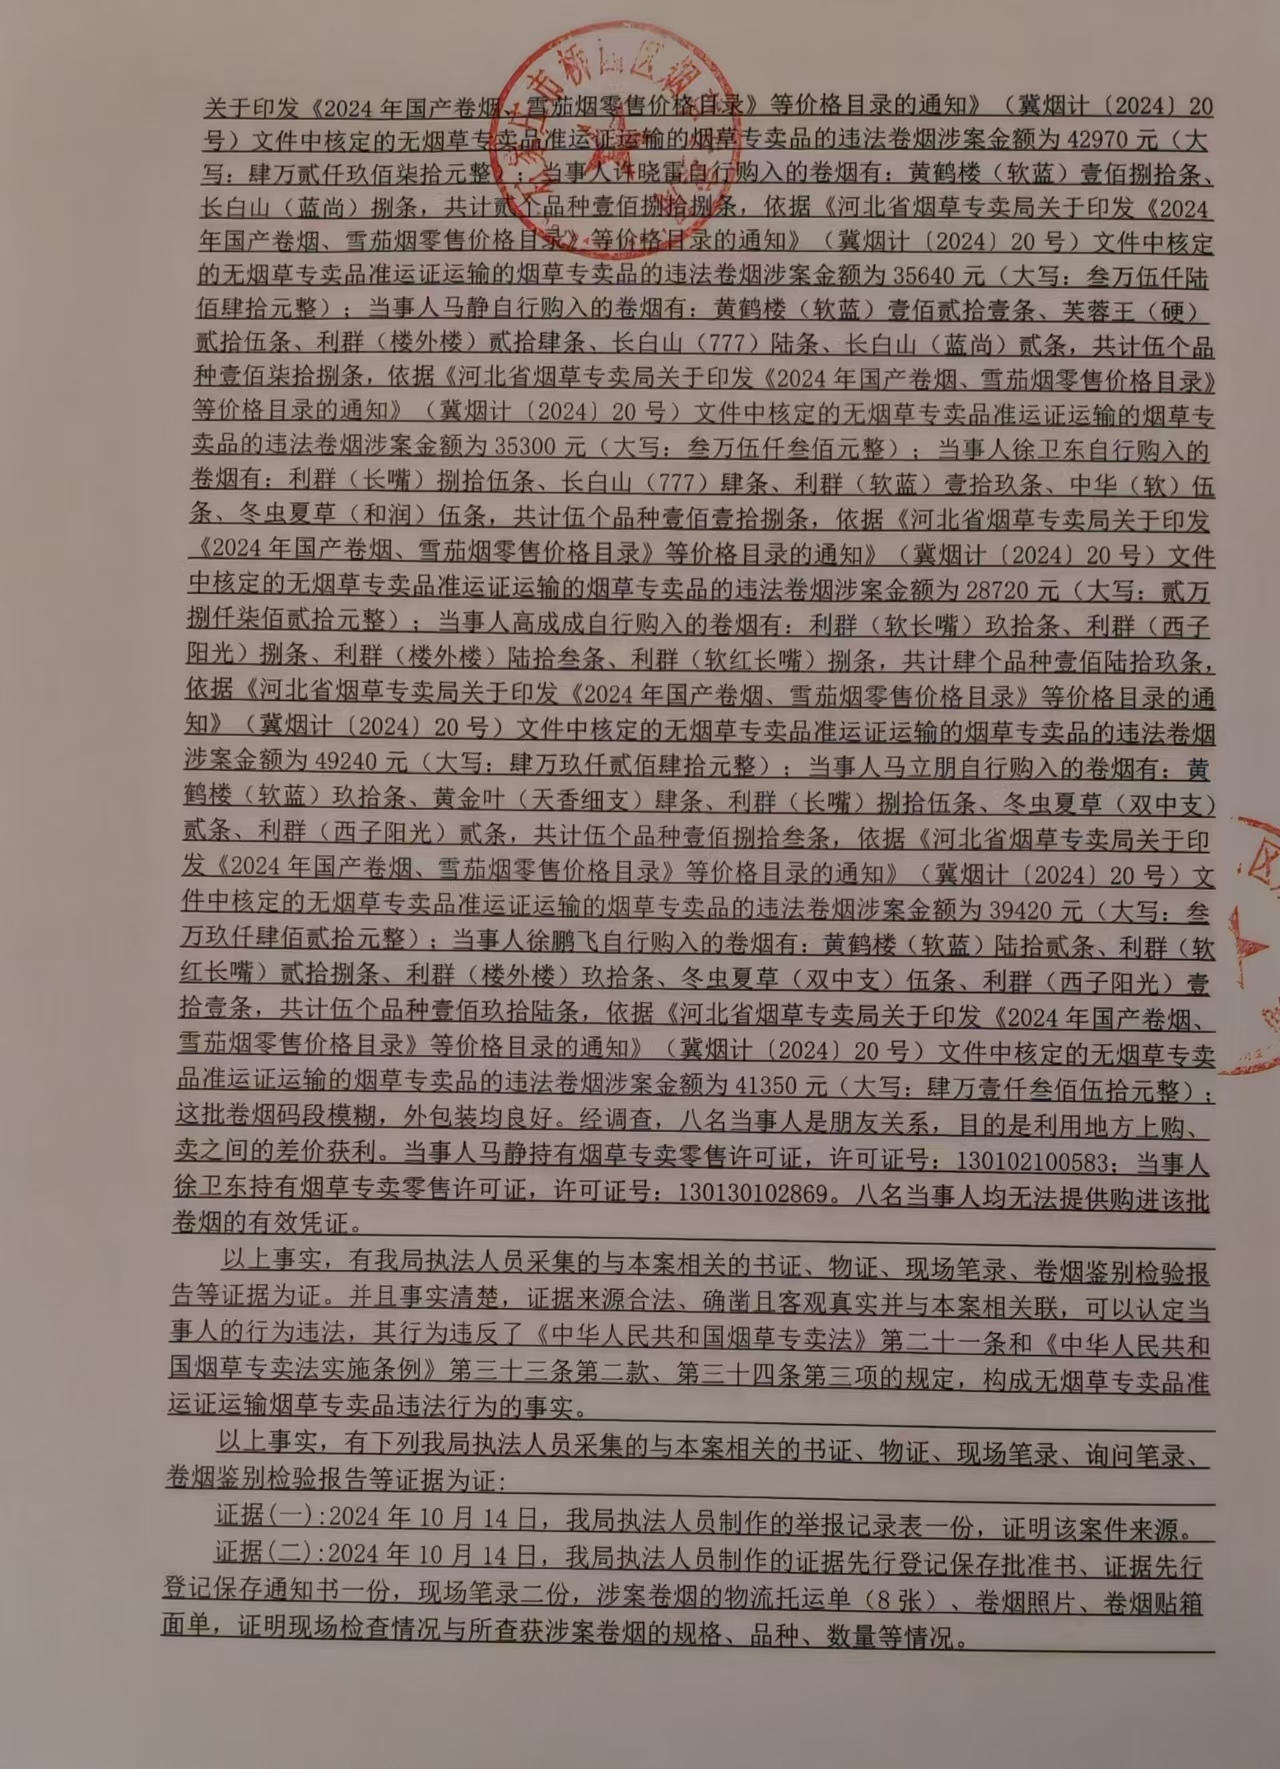 关于印发《2024年国产卷烟、雪茄烟零售价格目录》等价格目录的通知》（冀烟计〔2024〕20
号）文件中核定的无烟草专卖品准运证运输的烟草专卖品的违法卷烟涉案金额为42970元（大
写：肆万贰仟玖佰柒拾元整）；当事人许晓雷自行购入的卷烟有：黄鹤楼（软蓝）壹佰捌拾条、
长白山（蓝尚）捌条，共计贰个品种壹佰捌拾捌条，依据《河北省烟草专卖局关于印发《2024
年国产卷烟、雪茄烟零售价格目录》等价格目录的通知》（冀烟计〔2024〕20号）文件中核定
的无烟草专卖品准运证运输的烟草专卖品的违法卷烟涉案金额为35640元（大写：叁万伍仟陆
佰肆拾元整）；当事人马静自行购入的卷烟有：黄鹤楼（软蓝）壹佰贰拾壹条、芙蓉王（硬）
贰拾伍条、利群（楼外楼）贰拾肆条、长白山（777）陆条、长白山（蓝尚）贰条，共计伍个品
种壹佰柒拾捌条，依据《河北省烟草专卖局关于印发《2024年国产卷烟、雪茄烟零售价格目录》
等价格目录的通知》（冀烟计〔2024〕20号）文件中核定的无烟草专卖品准运证运输的烟草专
卖品的违法卷烟涉案金额为35300元（大写：叁万伍仟叁佰元整）；当事人徐卫东自行购入的
卷烟有：利群（长嘴）捌拾伍条、长白山（777）肆条、利群（软蓝）壹拾玖条、中华（软）伍
条、冬虫夏草（和润）伍条，共计伍个品种壹佰壹拾捌条，依据《河北省烟草专卖局关于印发
《2024年国产卷烟、雪茄烟零售价格目录》等价格目录的通知》（冀烟计〔2024〕20号）文件
中核定的无烟草专卖品准运证运输的烟草专卖品的违法卷烟涉案金额为28720元（大写：贰万
捌仟柒佰贰拾元整）；当事人高成成自行购入的卷烟有：利群（软长嘴）玖拾条、利群（西子
阳光）捌条、利群（楼外楼）陆拾叁条、利群（软红长嘴）捌条，共计肆个品种壹佰陆拾玖条，
依据《河北省烟草专卖局关于印发《2024年国产卷烟、雪茄烟零售价格目录》等价格目录的通
知》（冀烟计〔2024〕20号）文件中核定的无烟草专卖品准运证运输的烟草专卖品的违法卷烟
涉案金额为49240元（大写：肆万玖仟贰佰肆拾元整）；当事人马立朋自行购入的卷烟有：黄
鹤楼（软蓝）玖拾条、黄金叶（天香细支）肆条、利群（长嘴）捌拾伍条、冬虫夏草（双中支）
贰条、利群（西子阳光）贰条，共计伍个品种壹佰捌拾叁条，依据《河北省烟草专卖局关于印
发《2024年国产卷烟、雪茄烟零售价格目录》等价格目录的通知》（冀烟计〔2024〕20号）文
件中核定的无烟草专卖品准运证运输的烟草专卖品的违法卷烟涉案金额为39420元（大写：叁
万玖仟肆佰贰拾元整）；当事人徐鹏飞自行购入的卷烟有：黄鹤楼（软蓝）陆拾贰条、利群（软
红长嘴）贰拾捌条、利群（楼外楼）玖拾条、冬虫夏草（双中支）伍条、利群（西子阳光）壹
拾壹条，共计伍个品种壹佰玖拾陆条，依据《河北省烟草专卖局关于印发《2024年国产卷烟、
雪茄烟零售价格目录》等价格目录的通知》（冀烟计〔2024〕20号）文件中核定的无烟草专卖
品准运证运输的烟草专卖品的违法卷烟涉案金额为41350元（大写：肆万壹仟叁佰伍拾元整）；
这批卷烟码段模糊，外包装均良好。经调查，八名当事人是朋友关系，目的是利用地方上购、
卖之间的差价获利。当事人马静持有烟草专卖零售许可证，许可证号：130102100583；当事人
徐卫东持有烟草专卖零售许可证，许可证号：130130102869。八名当事人均无法提供购进该批
卷烟的有效凭证。
以上事实，有我局执法人员采集的与本案相关的书证、物证、现场笔录、卷烟鉴别检验报
告等证据为证。并且事实清楚，证据来源合法、确凿且客观真实并与本案相关联，可以认定当
事人的行为违法，其行为违反了《中华人民共和国烟草专卖法》第二十一条和《中华人民共和
国烟草专卖法实施条例》第三十三条第二款、第三十四条第三项的规定，构成无烟草专卖品准
运证运输烟草专卖品违法行为的事实。
以上事实，有下列我局执法人员采集的与本案相关的书证、物证、现场笔录、询问笔录、
卷烟鉴别检验报告等证据为证：
证据(一):2024年10月14日，我局执法人员制作的举报记录表一份，证明该案件来源。
证据(二):2024年10月14日，我局执法人员制作的证据先行登记保存批准书、证据先行
登记保存通知书一份，现场笔录二份，涉案卷烟的物流托运单（8张）、卷烟照片、卷烟贴箱
面单，证明现场检查情况与所查获涉案卷烟的规格、品种、数量等情况。